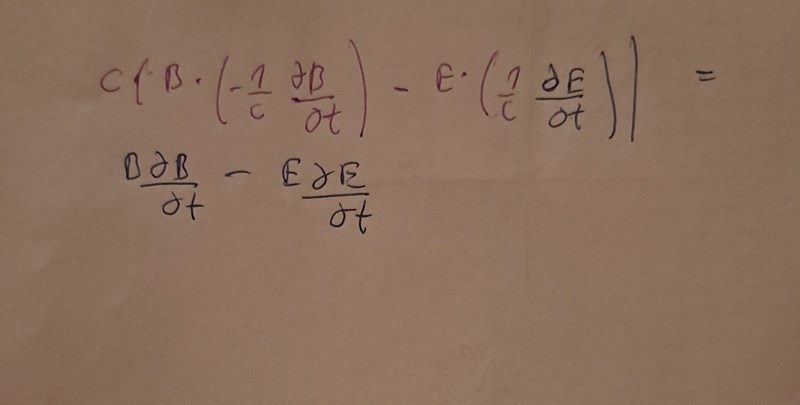 C( B · (-1/c ∂B/∂t) - E · (1/c ∂E/∂t)) =
B∂B/∂t - E∂E/∂t